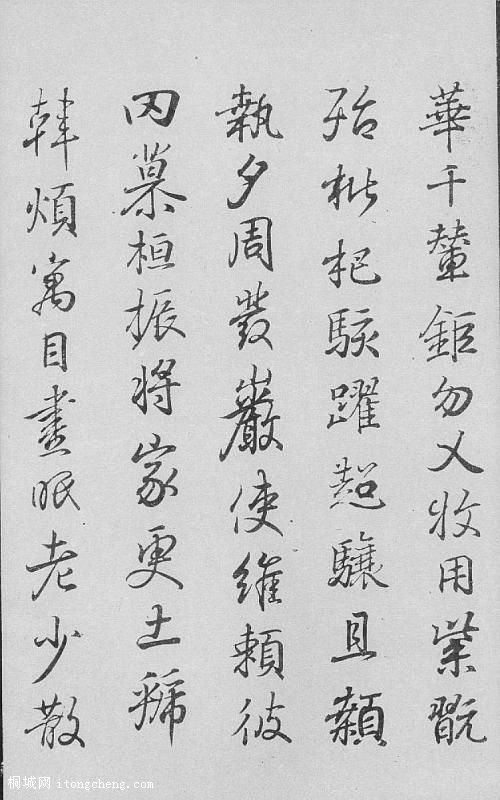 華千輦鉅勿乂牧用業翫
殆枇杷駭躍超驤且顙
執夕周發巖使維賴彼
罔慕桓振將家更土號
韓煩寓目晝眠老少散
桐城网 itongcheng.com